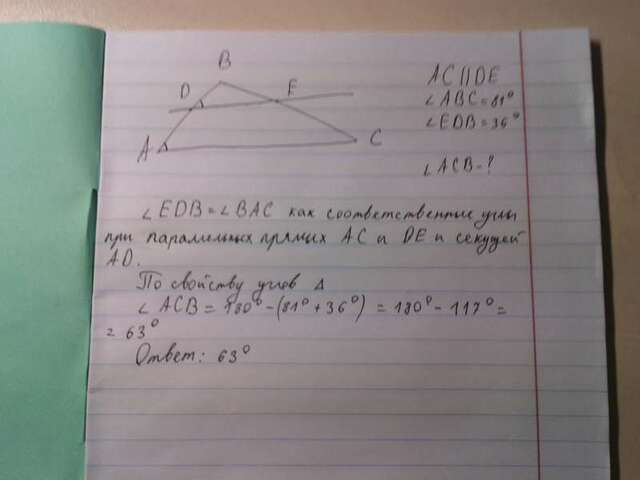 B
D
E
A
C
AC||DE
∠ABC=81°
∠EDB=36°
∠ACB-?
∠EDB=∠BAC как соответственные углы
при параллельных прямых AC и DE и секущей
AD.
По свойству углов Δ
∠ACB = 180°-(81°+36°) = 180°-117°=
= 63°
Ответ: 63°